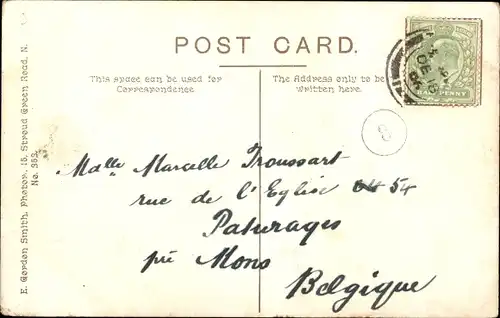 POST CARD.
This space can be used for
Correspondence
The Address only to be
written here.
E. Gordon Smith, Photor, 15, Stroud Green Road, N.
No. 353.
PENNY
DE
Madlle Marcelle Troussart
rue de l'Eglise 54
Paturages
près Mons
Belgique